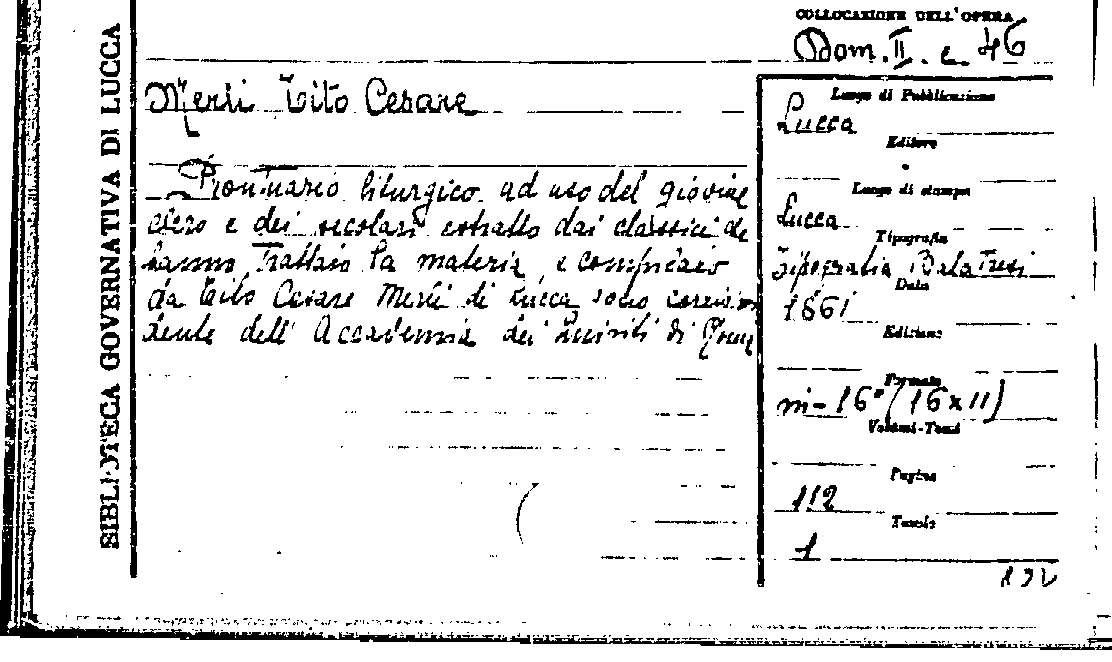 BIBLIOTECA GOVERNATIVA DI LUCCA
COLLOCAZIONE DELL'OPERA
Dom. II. c. 46
Merli Tito Cesare
Prontuario liturgico ad uso del giovine
clero e dei secolari estratto dai classici che
hanno trattato la materia, e compilato
da Tito Cesare Merli di Lucca socio corrispon
dente dell' Accademia dei Quiriti di Roma
Luogo di Pubblicazione
Lucca
Editore
Luogo di stampa
Lucca
Tipografia
Tipografia Balatresi
Data
1861
Edizione
Formato
in-16° (16x11)
Volumi-Tomi
Pagine
112
Tavole
1